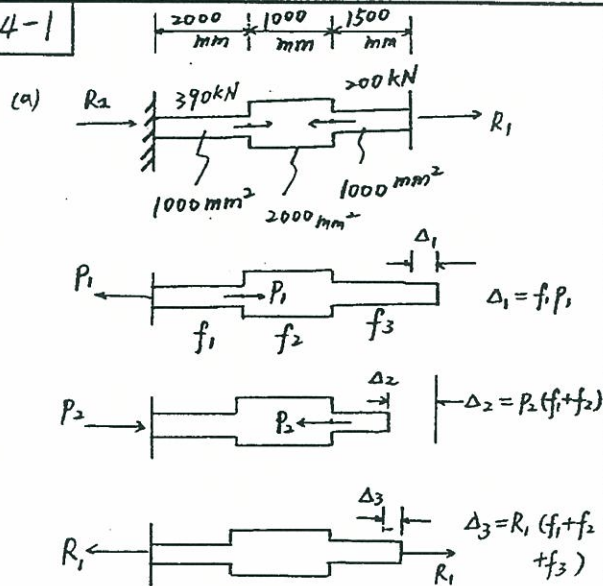 4-1
2000 mm
1000 mm
1500 mm
(a)
R2
390kN
200kN
R1
1000mm²
2000mm²
1000mm²
Δ1
P1
P1
f1
f2
f3
Δ1=f1P1
Δ2
P2
P2
Δ2=P2(f1+f2)
Δ3
Δ3=R1(f1+f2
+f3)
R1
R1